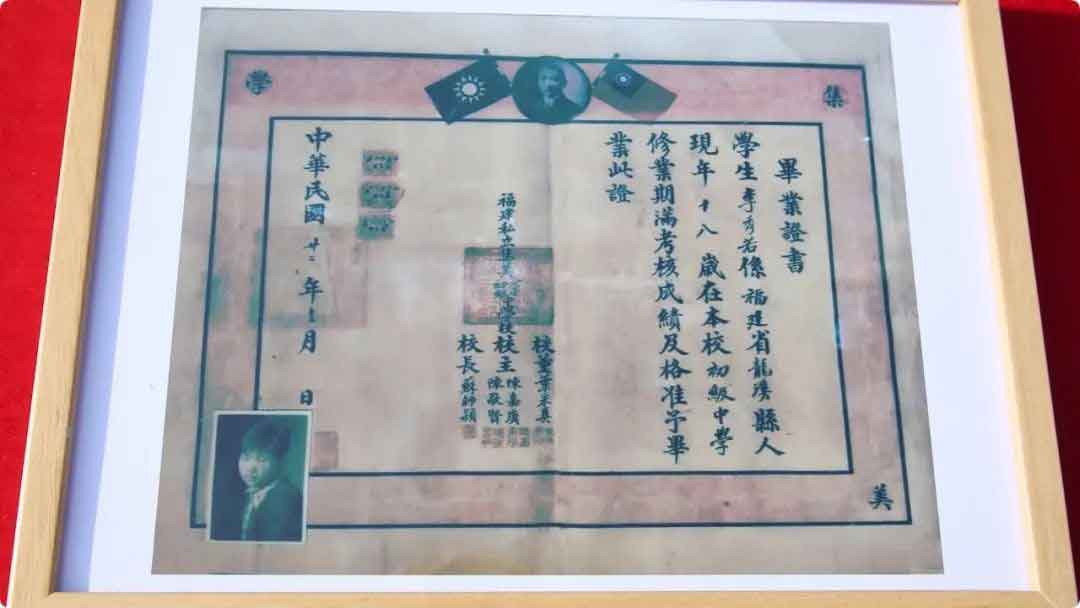 集
美
學
畢業證書
學生李秀若係福建省龍溪縣人
現年十八歲在本校初級中學
修業期滿考核成績及格准予畢
業此證
校董葉采真
福建私立集美中學校校主陳嘉庚
陳敬賢
校長蘇師穎
中華民國廿二年 月 日